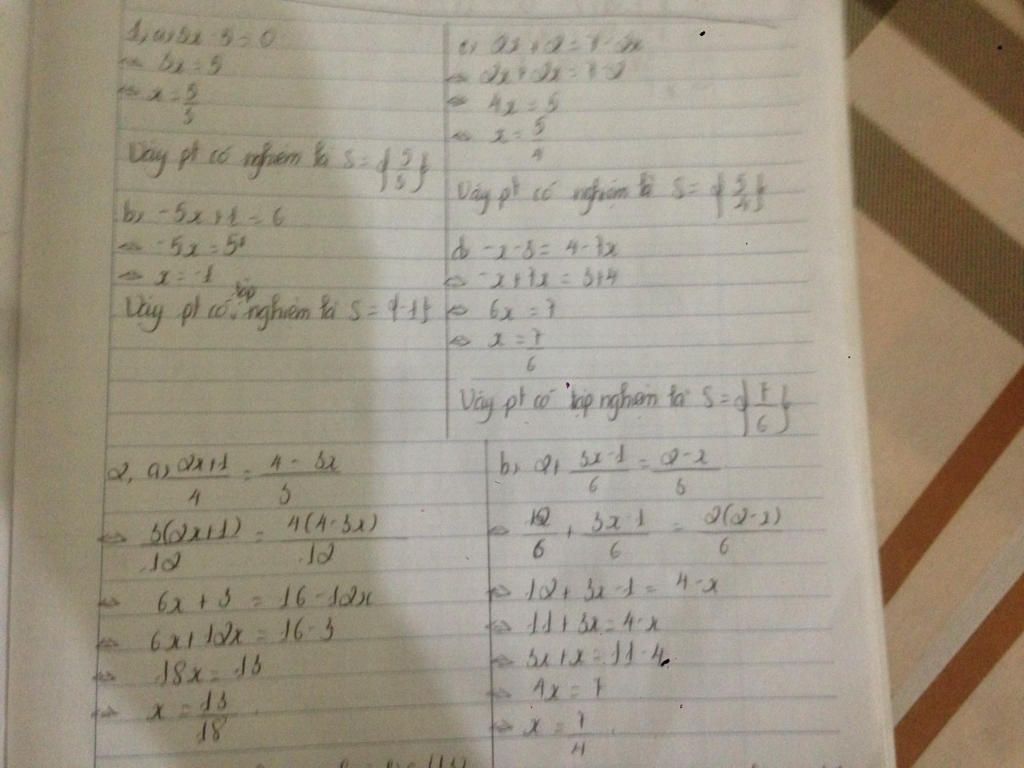 1, a, 3x - 5 = 0
⇔ 3x = 5
⇔ x = 5/3
Vậy pt có nghiệm là S = {5/3}
b, -5x + 1 = 6
⇔ -5x = 5
⇔ x = -1
Vậy pt có tập nghiệm là S = {-1}
c, 2x + 2 = 7 - 2x
⇔ 2x + 2x = 7 - 2
⇔ 4x = 5
⇔ x = 5/4
Vậy pt có nghiệm là S = {5/4}
d, -x - 3 = 4 - 7x
⇔ -x + 7x = 3 + 4
⇔ 6x = 7
⇔ x = 7/6
Vậy pt có tập nghiệm là S = {7/6}
2, a, (2x + 1)/4 = (4 - 3x)/3
⇔ 3(2x + 1)/12 = 4(4 - 3x)/12
⇔ 6x + 3 = 16 - 12x
⇔ 6x + 12x = 16 - 3
⇔ 18x = 13
⇔ x = 13/18
b, 2 + (3x - 1)/6 = (2 - x)/3
⇔ 12/6 + (3x - 1)/6 = 2(2 - x)/6
⇔ 12 + 3x - 1 = 4 - x
⇔ 11 + 3x = 4 - x
⇔ 3x + x = 11 - 4
⇔ 4x = 7
⇔ x = 7/4